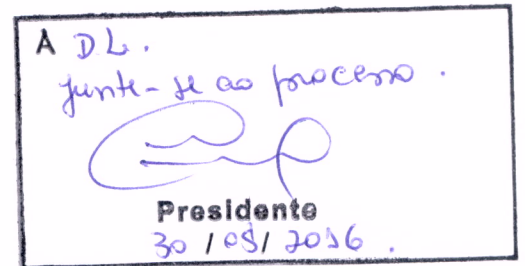 A DL.
Junte-se ao processo.
Presidente
30 / 05 / 2016.